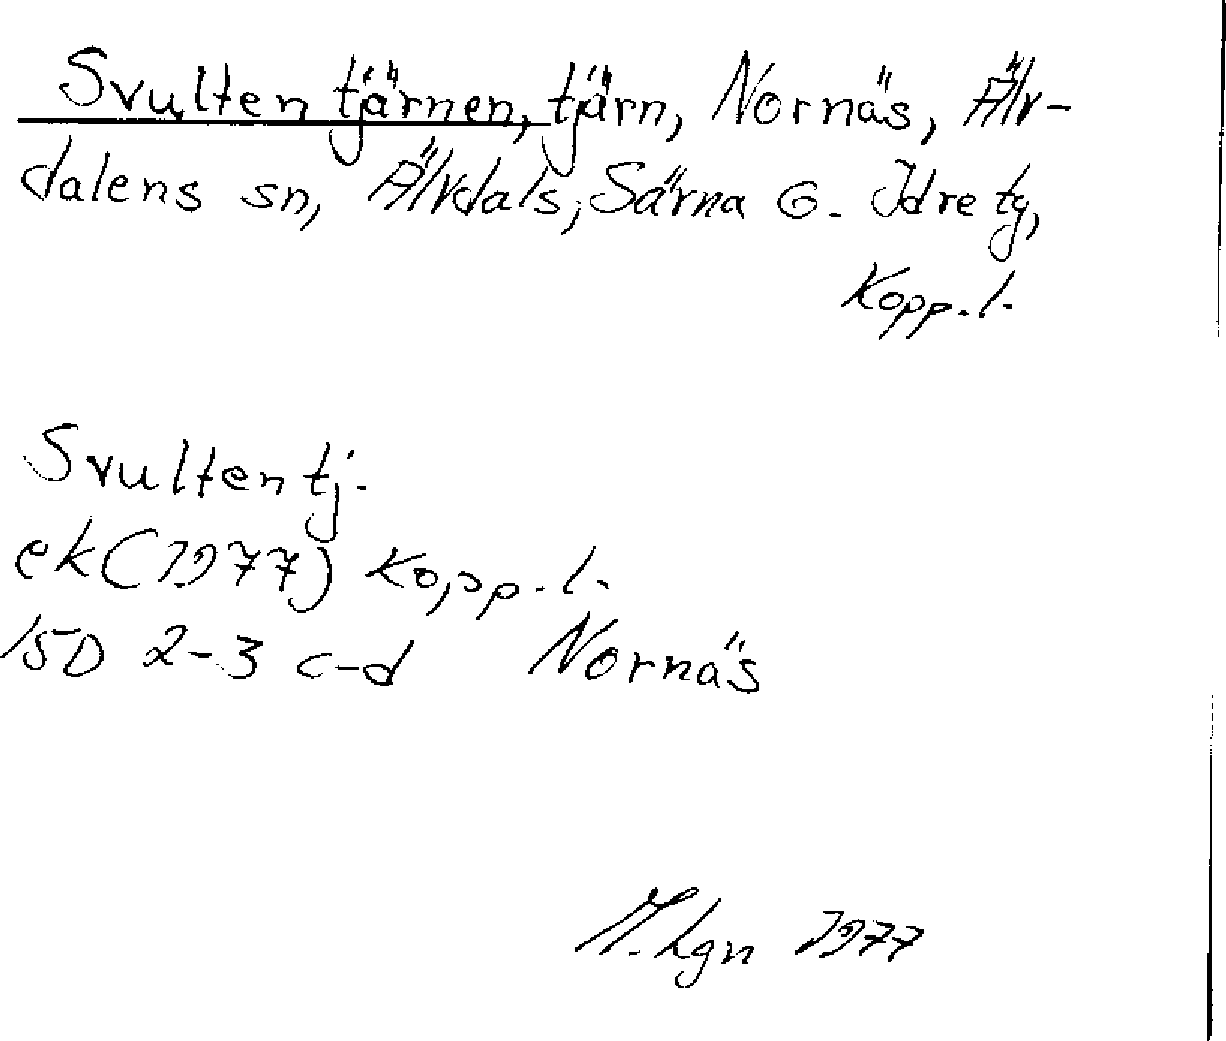 Svulten tjärnen, tjärn, Nornäs, Älv-
dalens sn, Älvdals, Särna o. Idre tg,
Kopp. l.
Svulten tj.
ek (1977) Kopp. l.
15D 2-3 c-d Nornäs
M. Lgn 1977